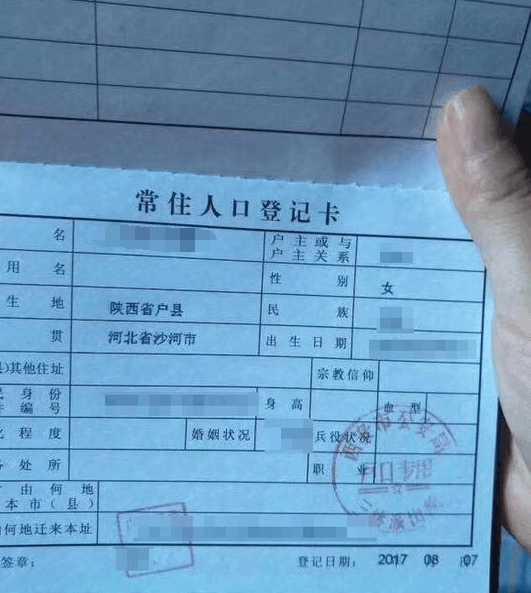 常住人口登记卡
名 户主或与户主关系
用名 性别 女
生地 陕西省户县 民族
贯 河北省沙河市 出生日期
)其他住址 宗教信仰
身份 编号 身高 血型
程度 婚姻状况 兵役状况
处所 职业
由何地 本市(县)
何地迁来本址
签章： 登记日期： 2017 08 07